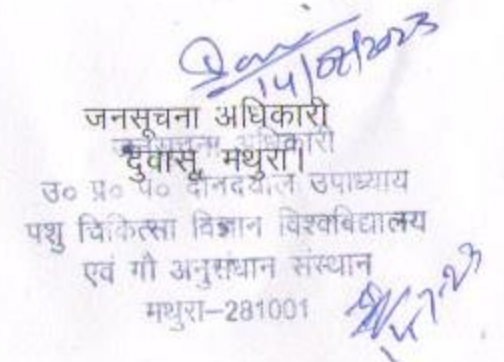 14/07/2023
जनसूचना अधिकारी
जनसूचना अधिकारी
दुवासू, मथुरा।
उ० प्र० पं० दीनदयाल उपाध्याय
पशु चिकित्सा विज्ञान विश्वविद्यालय
एवं गौ अनुसंधान संस्थान
मथुरा-281001